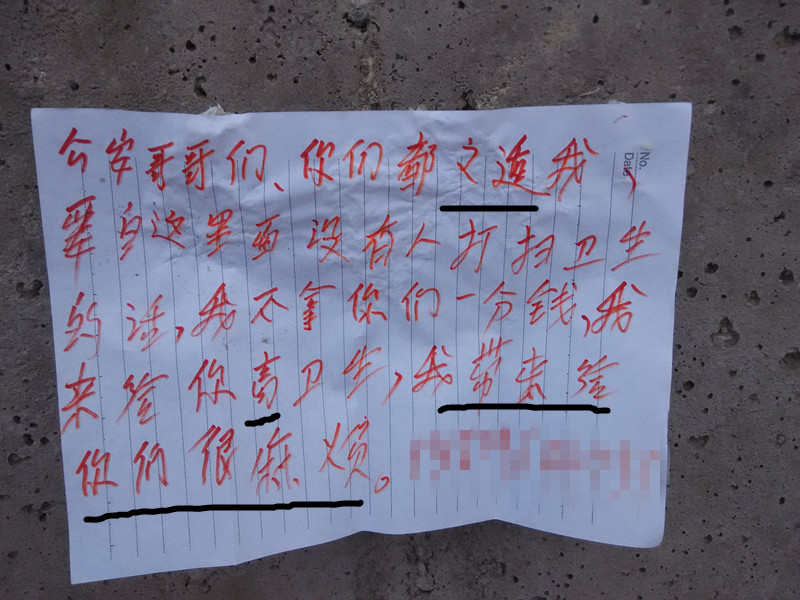 No.
Date
岁哥哥们、你们都文造我
这里面没有人打扫卫生
的话,我不拿你们一分钱,我
来给你高卫生,我带来给
你们很麻烦。